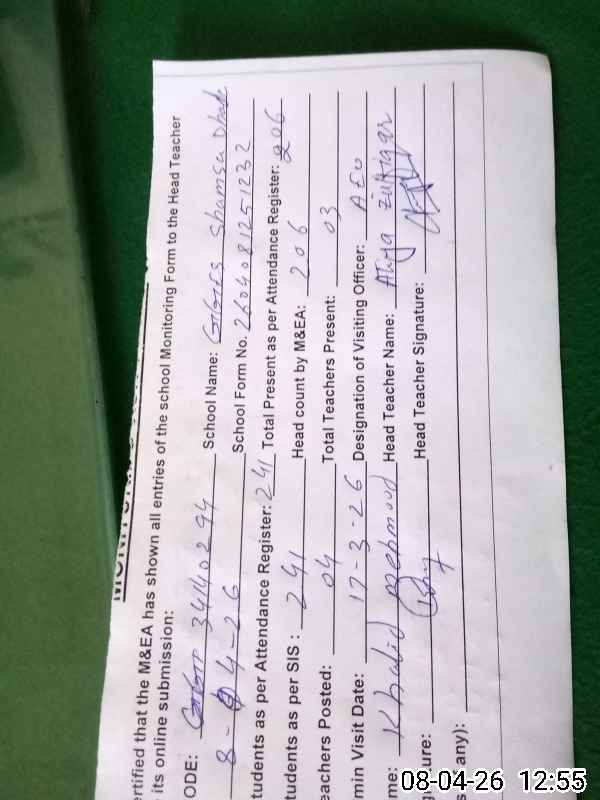 ertified that the M&EA has shown all entries of the school Monitoring Form to the Head Teacher
its online submission:
ODE: 34140294 School Name: GGES Shamsa
8-4-26 School Form No. 2604081251232
tudents as per Attendance Register: 241 Total Present as per Attendance Register: 206
tudents as per SIS : 241 Head count by M&EA: 206
eachers Posted: 04 Total Teachers Present: 03
min Visit Date: 17-3-26 Designation of Visiting Officer: AEO
me: Khalid Mehmood Head Teacher Name: Zulfiqar
ure: Head Teacher Signature:
any):
08-04-26 12:55